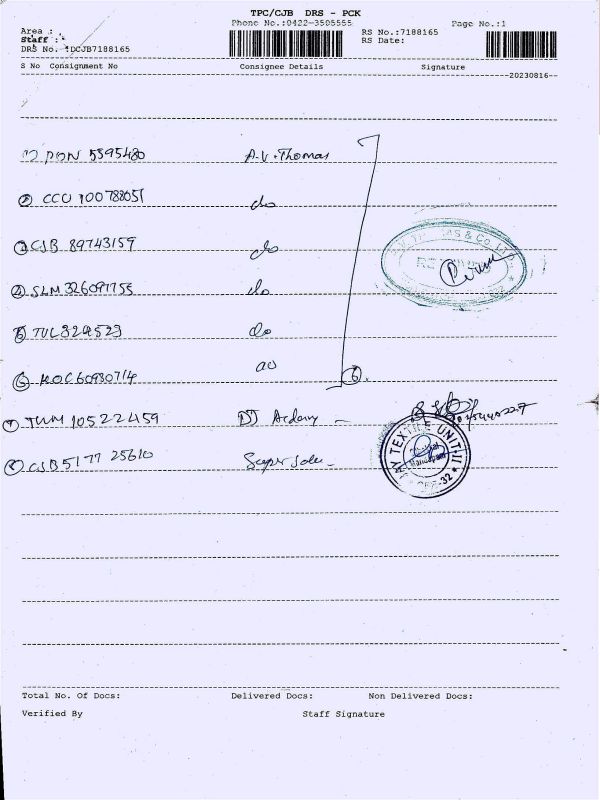 TPC/CJB DRS - PCK
Phone No.:0422-3505555
Page No.:1
Area :
Staff :
DRS No. :DCJB7188165
RS No.:7188165
RS Date:
S No Consignment No Consignee Details Signature
20230816
1 PON 5595480 A.V. Thomas
2 CCU 100788051 do
3 CJB 89743159 do
4 SLM 326097755 do
5 do
6 KOC 60930714 do 6.
7 TUM 105222459
8 CJB 5177 25610
& CO.
TEXTILE UNIT-II
Total No. Of Docs: Delivered Docs: Non Delivered Docs:
Verified By Staff Signature